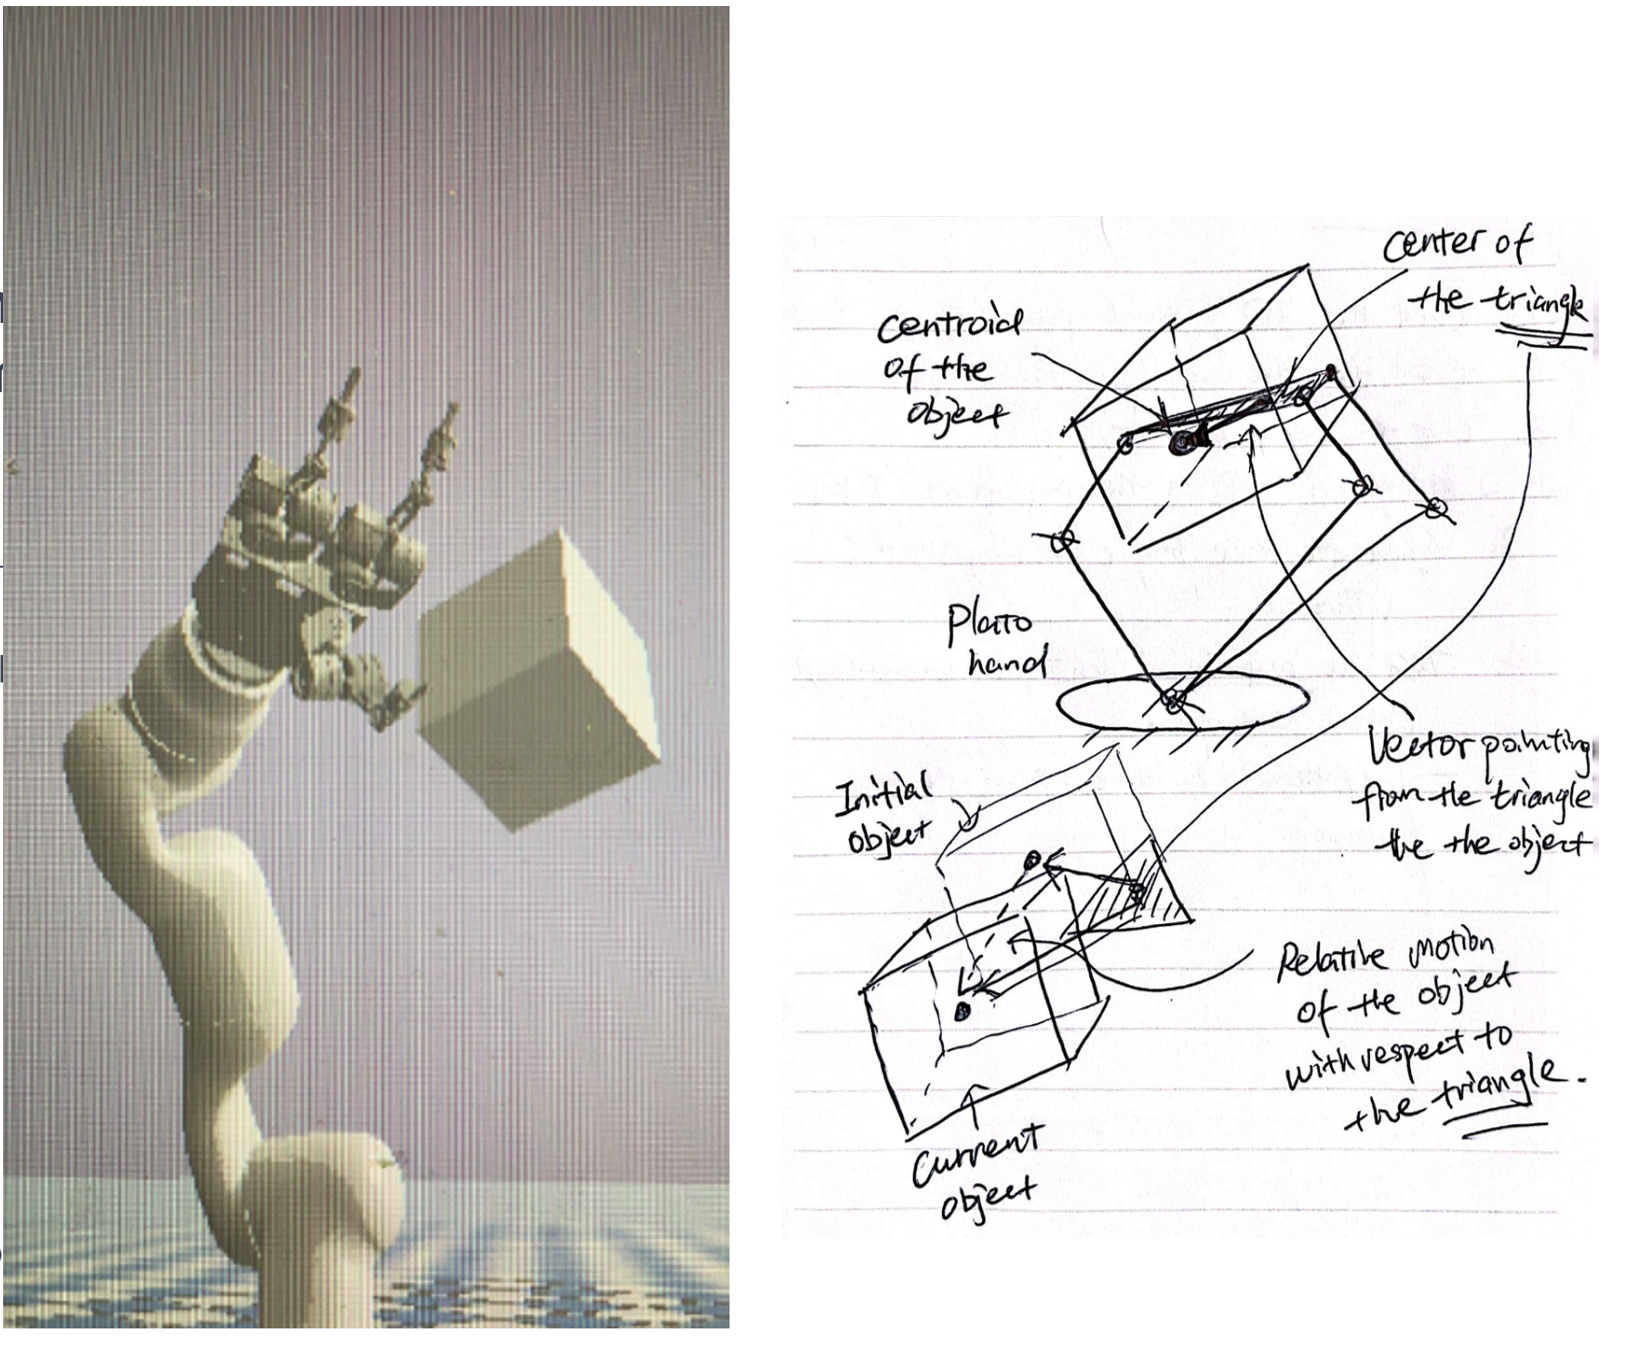 center of
the triangle
Centroid
of the
object
Plato
hand
Vector pointing
from the triangle
the the object
Initial
object
Relative motion
of the object
with respect to
the triangle.
Current
object